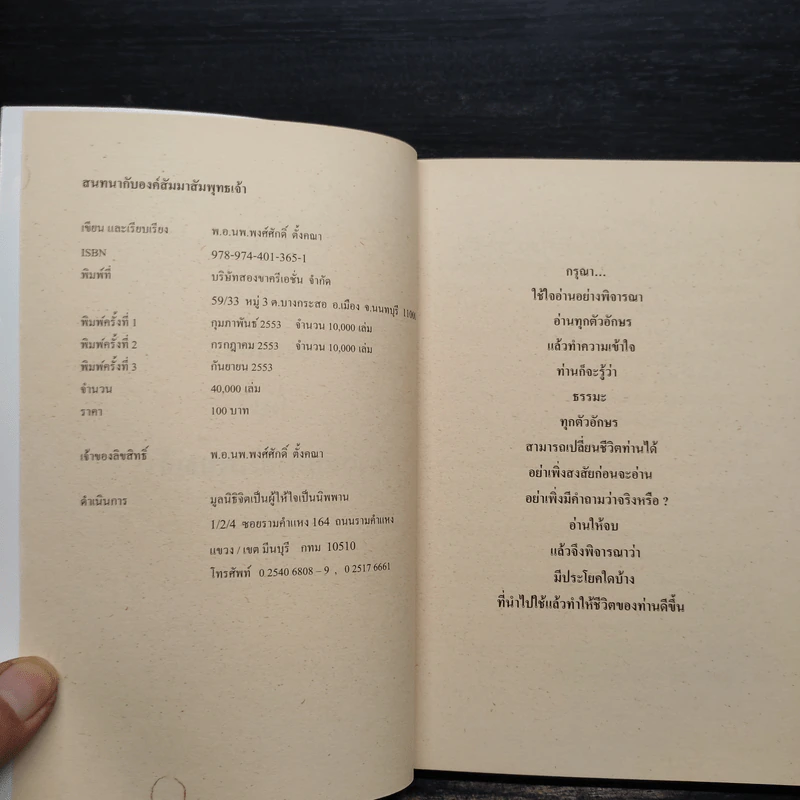 สนทนากับองค์สัมมาสัมพุทธเจ้า
เขียน และเรียบเรียง พ.อ.นพ.พงศ์ศักดิ์ ตั้งคณา
ISBN 978-974-401-365-1
พิมพ์ที่ บริษัทสองขาครีเอชั่น จำกัด
59/33 หมู่ 3 ต.บางกระสอ อ.เมือง จ.นนทบุรี 11000
พิมพ์ครั้งที่ 1 กุมภาพันธ์ 2553 จำนวน 10,000 เล่ม
พิมพ์ครั้งที่ 2 กรกฎาคม 2553 จำนวน 10,000 เล่ม
พิมพ์ครั้งที่ 3 กันยายน 2553
จำนวน 40,000 เล่ม
ราคา 100 บาท
เจ้าของลิขสิทธิ์ พ.อ.นพ.พงศ์ศักดิ์ ตั้งคณา
ดำเนินการ มูลนิธิจิตเป็นผู้ให้ใจเป็นนิพพาน
1/2/4 ซอยรามคำแหง 164 ถนนรามคำแหง
แขวง / เขต มีนบุรี กทม 10510
โทรศัพท์ 0 2540 6808 – 9 , 0 2517 6661
กรุณา...
ใช้ใจอ่านอย่างพิจารณา
อ่านทุกตัวอักษร
แล้วทำความเข้าใจ
ท่านก็จะรู้ว่า
ธรรมะ
ทุกตัวอักษร
สามารถเปลี่ยนชีวิตท่านได้
อย่าเพิ่งสงสัยก่อนจะอ่าน
อย่าเพิ่งมีคำถามว่าจริงหรือ ?
อ่านให้จบ
แล้วจึงพิจารณาว่า
มีประโยคใดบ้าง
ที่นำไปใช้แล้วทำให้ชีวิตของท่านดีขึ้น